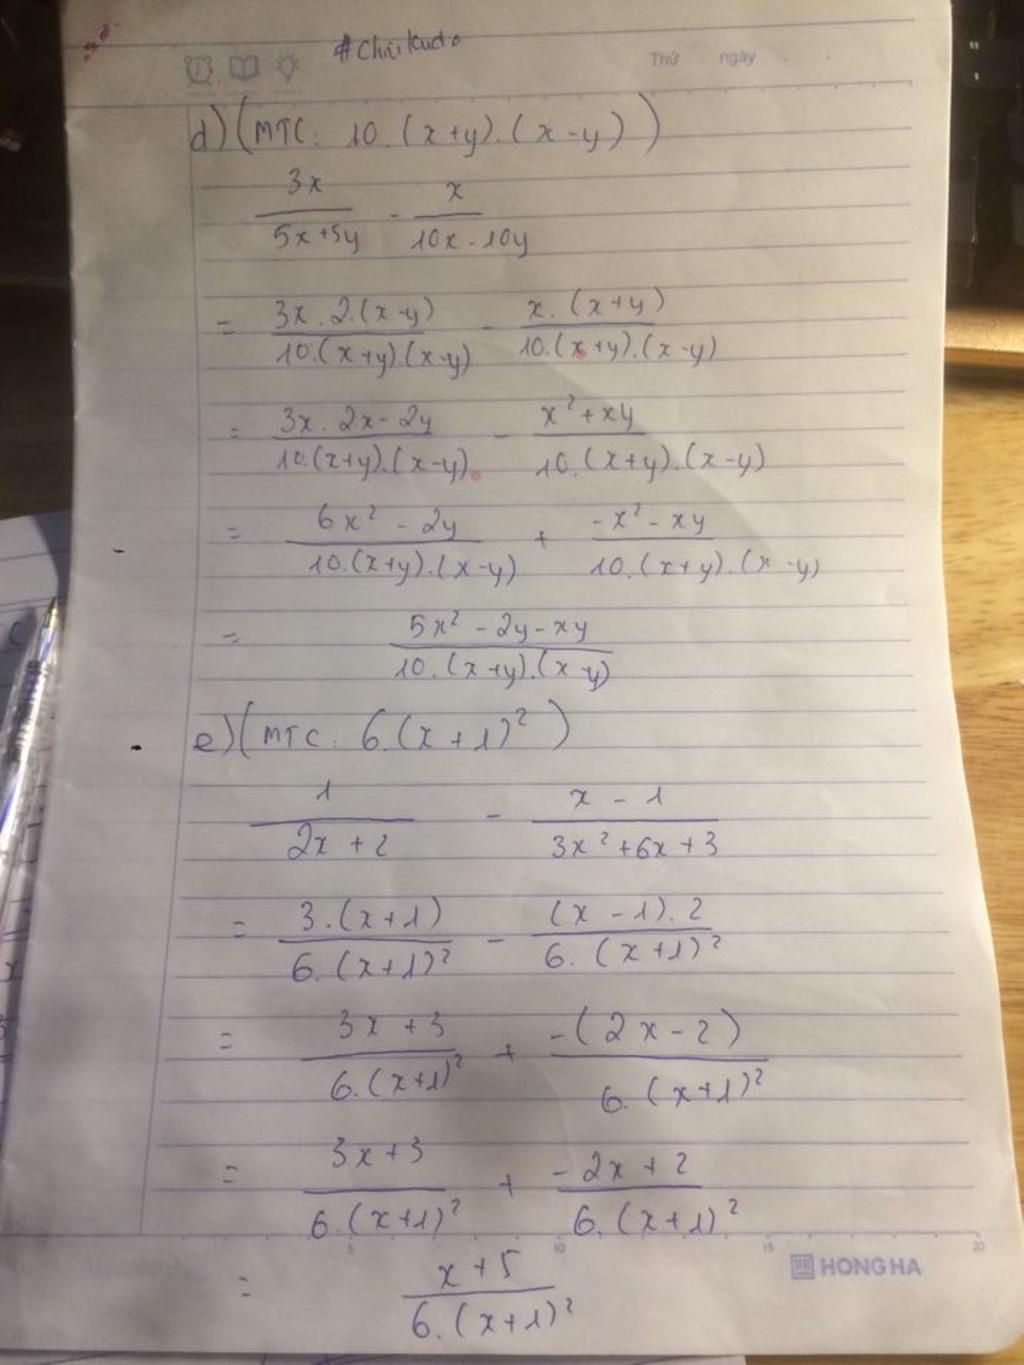 #Chiikudo
Thứ ngày
d) (MTC: 10.(x+y).(x-y))
3x/(5x+5y) - x/(10x-10y)
= 3x.2.(x-y)/10.(x+y).(x-y) - x.(x+y)/10.(x+y).(x-y)
= 3x.2x-2y/10.(x+y).(x-y) - x²+xy/10.(x+y).(x-y)
= 6x²-2y/10.(x+y).(x-y) + -x²-xy/10.(x+y).(x-y)
= 5x²-2y-xy/10.(x+y).(x-y)
e) (MTC: 6.(x+1)²)
1/(2x+2) - x-1/(3x²+6x+3)
= 3.(x+1)/6.(x+1)² - (x-1).2/6.(x+1)²
= 3x+3/6.(x+1)² + -(2x-2)/6.(x+1)²
= 3x+3/6.(x+1)² + -2x+2/6.(x+1)²
5 10 15 20
HONG HA
= x+5/6.(x+1)²